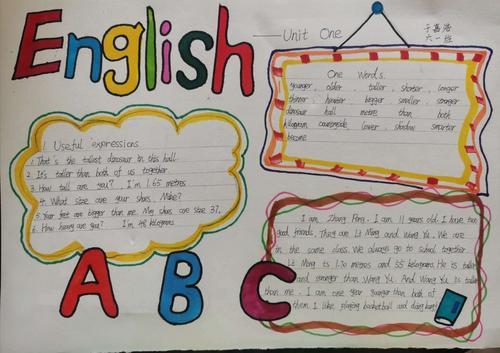 English
Unit One
于嘉浩
六一班
One Words.
younger, older, taller, shorter, longer
thinner heavier bigger smaller stronger
dinosaur hall metre than both
kilogram countryside lower shadow smarter
become
1 Useful expressions
1. That's the tallest dinosaur in this hall.
2. It's taller than both of us together.
3. How tall are you? I'm 1.65 metres.
4. What size are your shoes, Mike?
5. Your feet are bigger than me. My shoes are size 37.
6. How heavy are you? I'm 48 kilograms
I am Zhang Peng. I am 11 years old. I have two
good friends. They are Li Ming and Wang Yu. We are
in the same class. We always go to school together
Li Ming is 1.70 metres and 55 kilograms. He is taller
and stronger than Wang Yu. And Wang Yu is taller
than me. I am one year younger than both of
them. I like playing basketball and
A B C